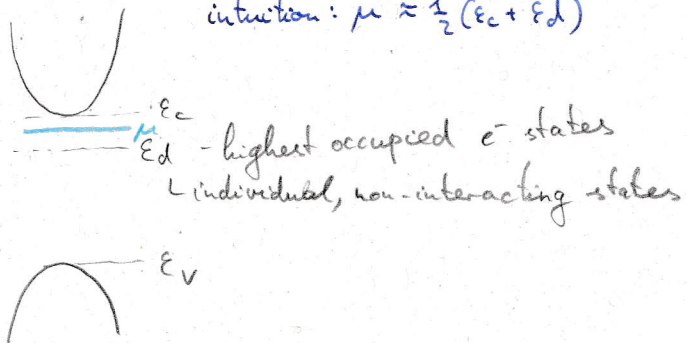 intuition: μ ≈ ½ (εc + εd)
εc
μ
εd - highest occupied e⁻ states
└ individual, non-interacting states
εv